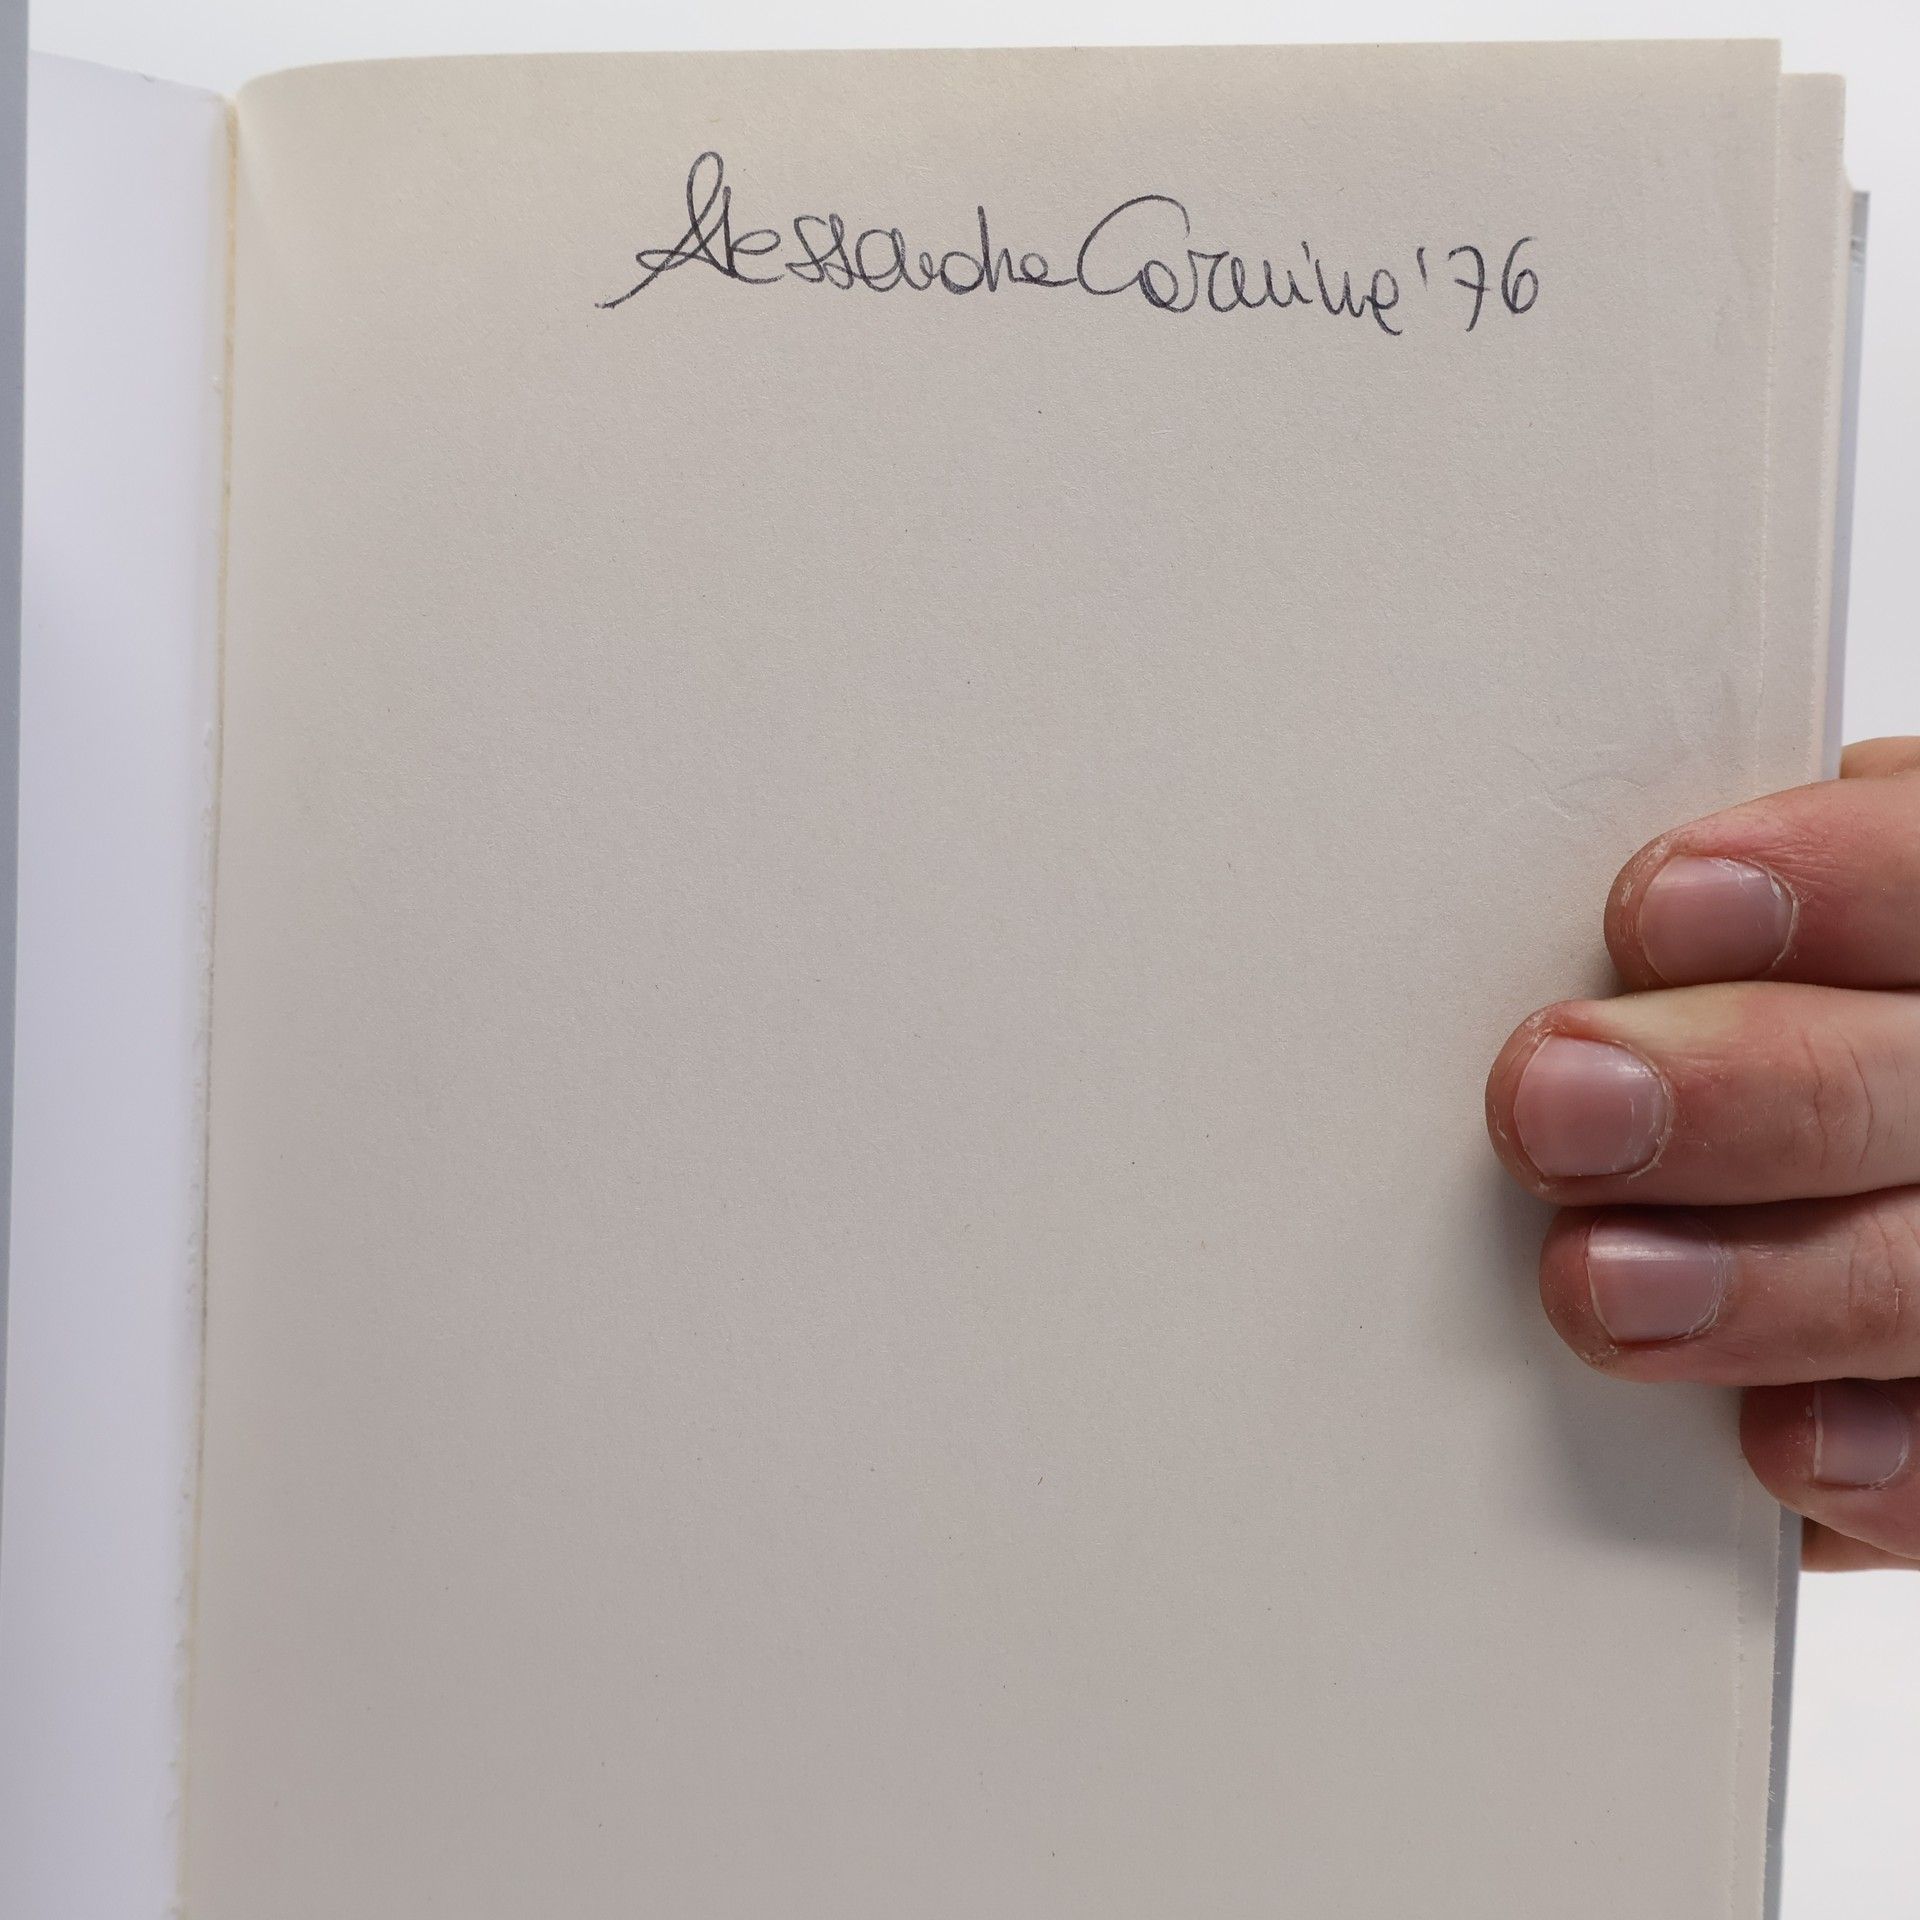 Alessandra Caranina '76